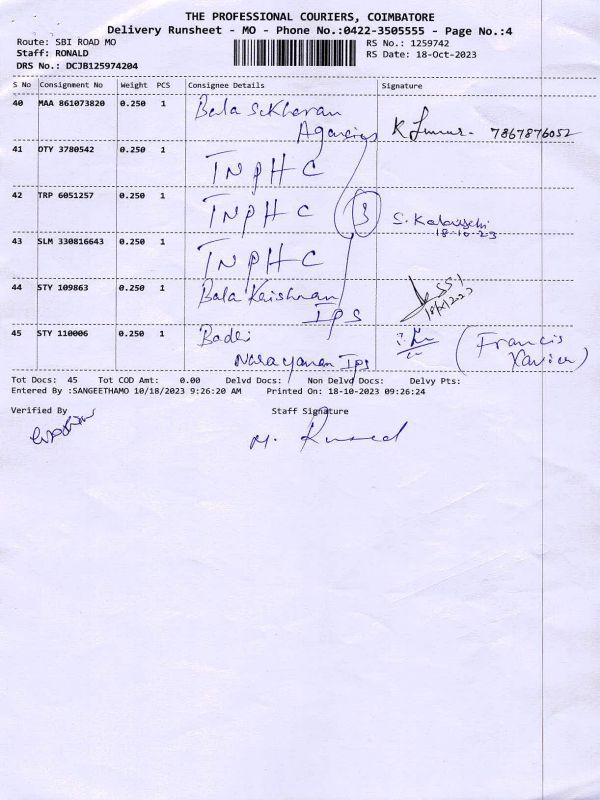 THE PROFESSIONAL COURIERS, COIMBATORE
Delivery Runsheet - MO - Phone No.:0422-3505555 - Page No.:4
Route: SBI ROAD MO
RS No.: 1259742
Staff: RONALD
RS Date: 18-Oct-2023
DRS No.: DCJB125974204
S No Consignment No Weight PCS Consignee Details Signature
40 MAA 861073820 0.250 1 Bala Sekharan
Agencies K 7867876052
41 OTY 3780542 0.250 1
TNPHC
42 TRP 6051257 0.250 1 TNPHC 3 S.
18-10-23
43 SLM 330816643 0.250 1
TNPHC
44 STY 109863 0.250 1 Bala Krishnan
IPS
45 STY 110006 0.250 1 Badri
Narayanan IPS (Francis
Xavier)
Tot Docs: 45 Tot COD Amt: 0.00 Delvd Docs: Non Delvd Docs: Delvy Pts:
Entered By :SANGEETHAMO 10/18/2023 9:26:20 AM Printed On: 18-10-2023 09:26:24
Verified By Staff Signature
M.